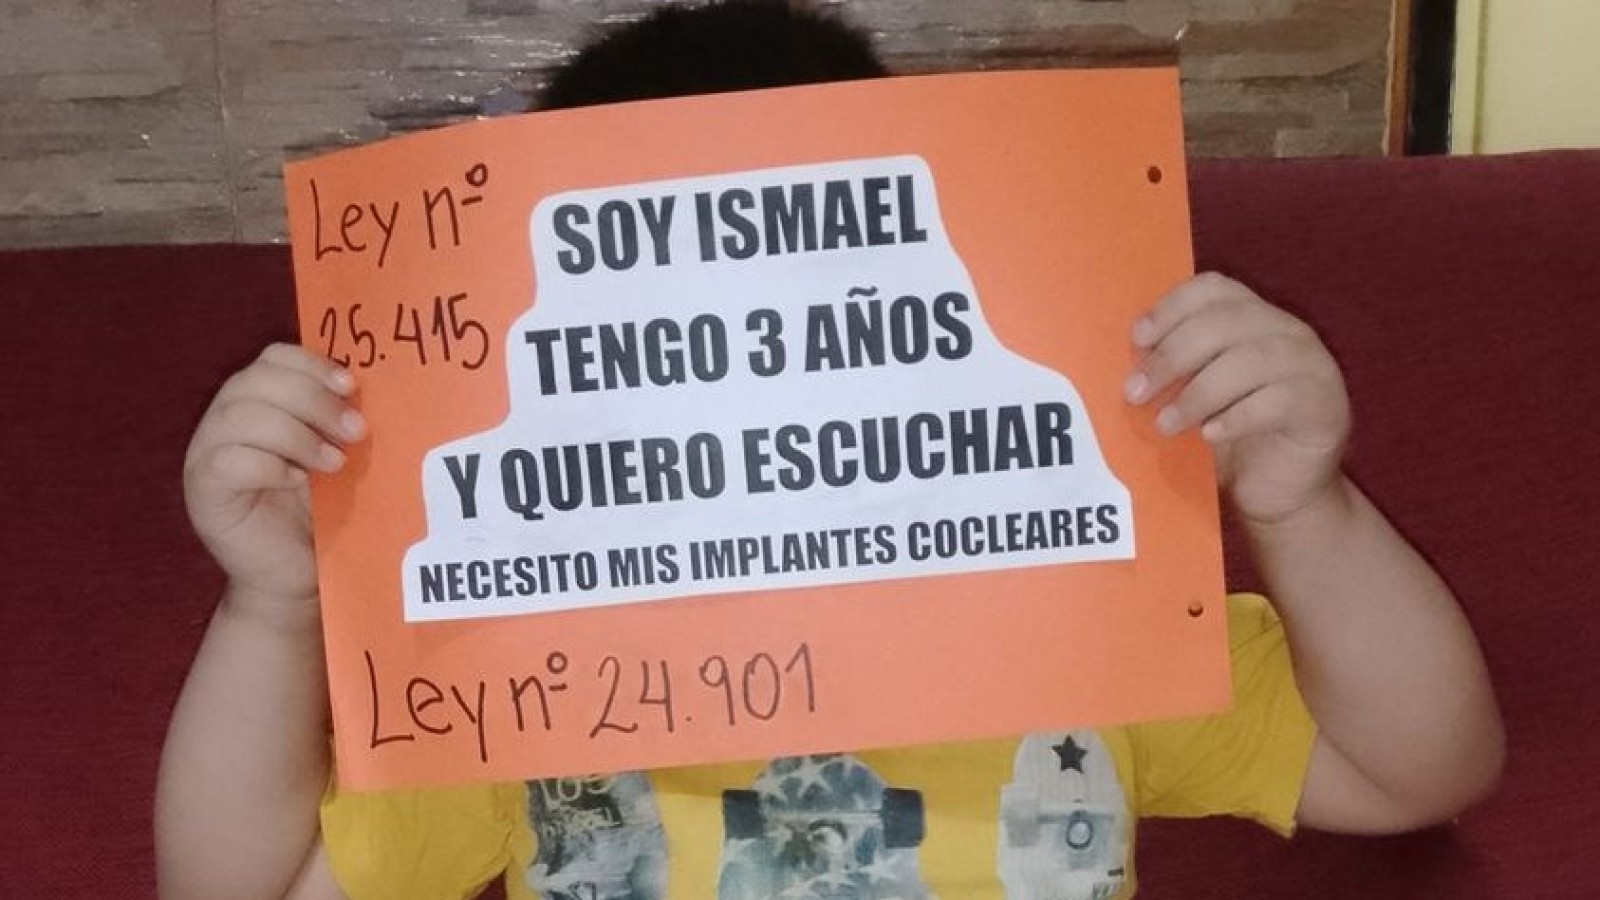 Ley nº
25.415
SOY ISMAEL
TENGO 3 AÑOS
Y QUIERO ESCUCHAR
NECESITO MIS IMPLANTES COCLEARES
Ley nº 24.901